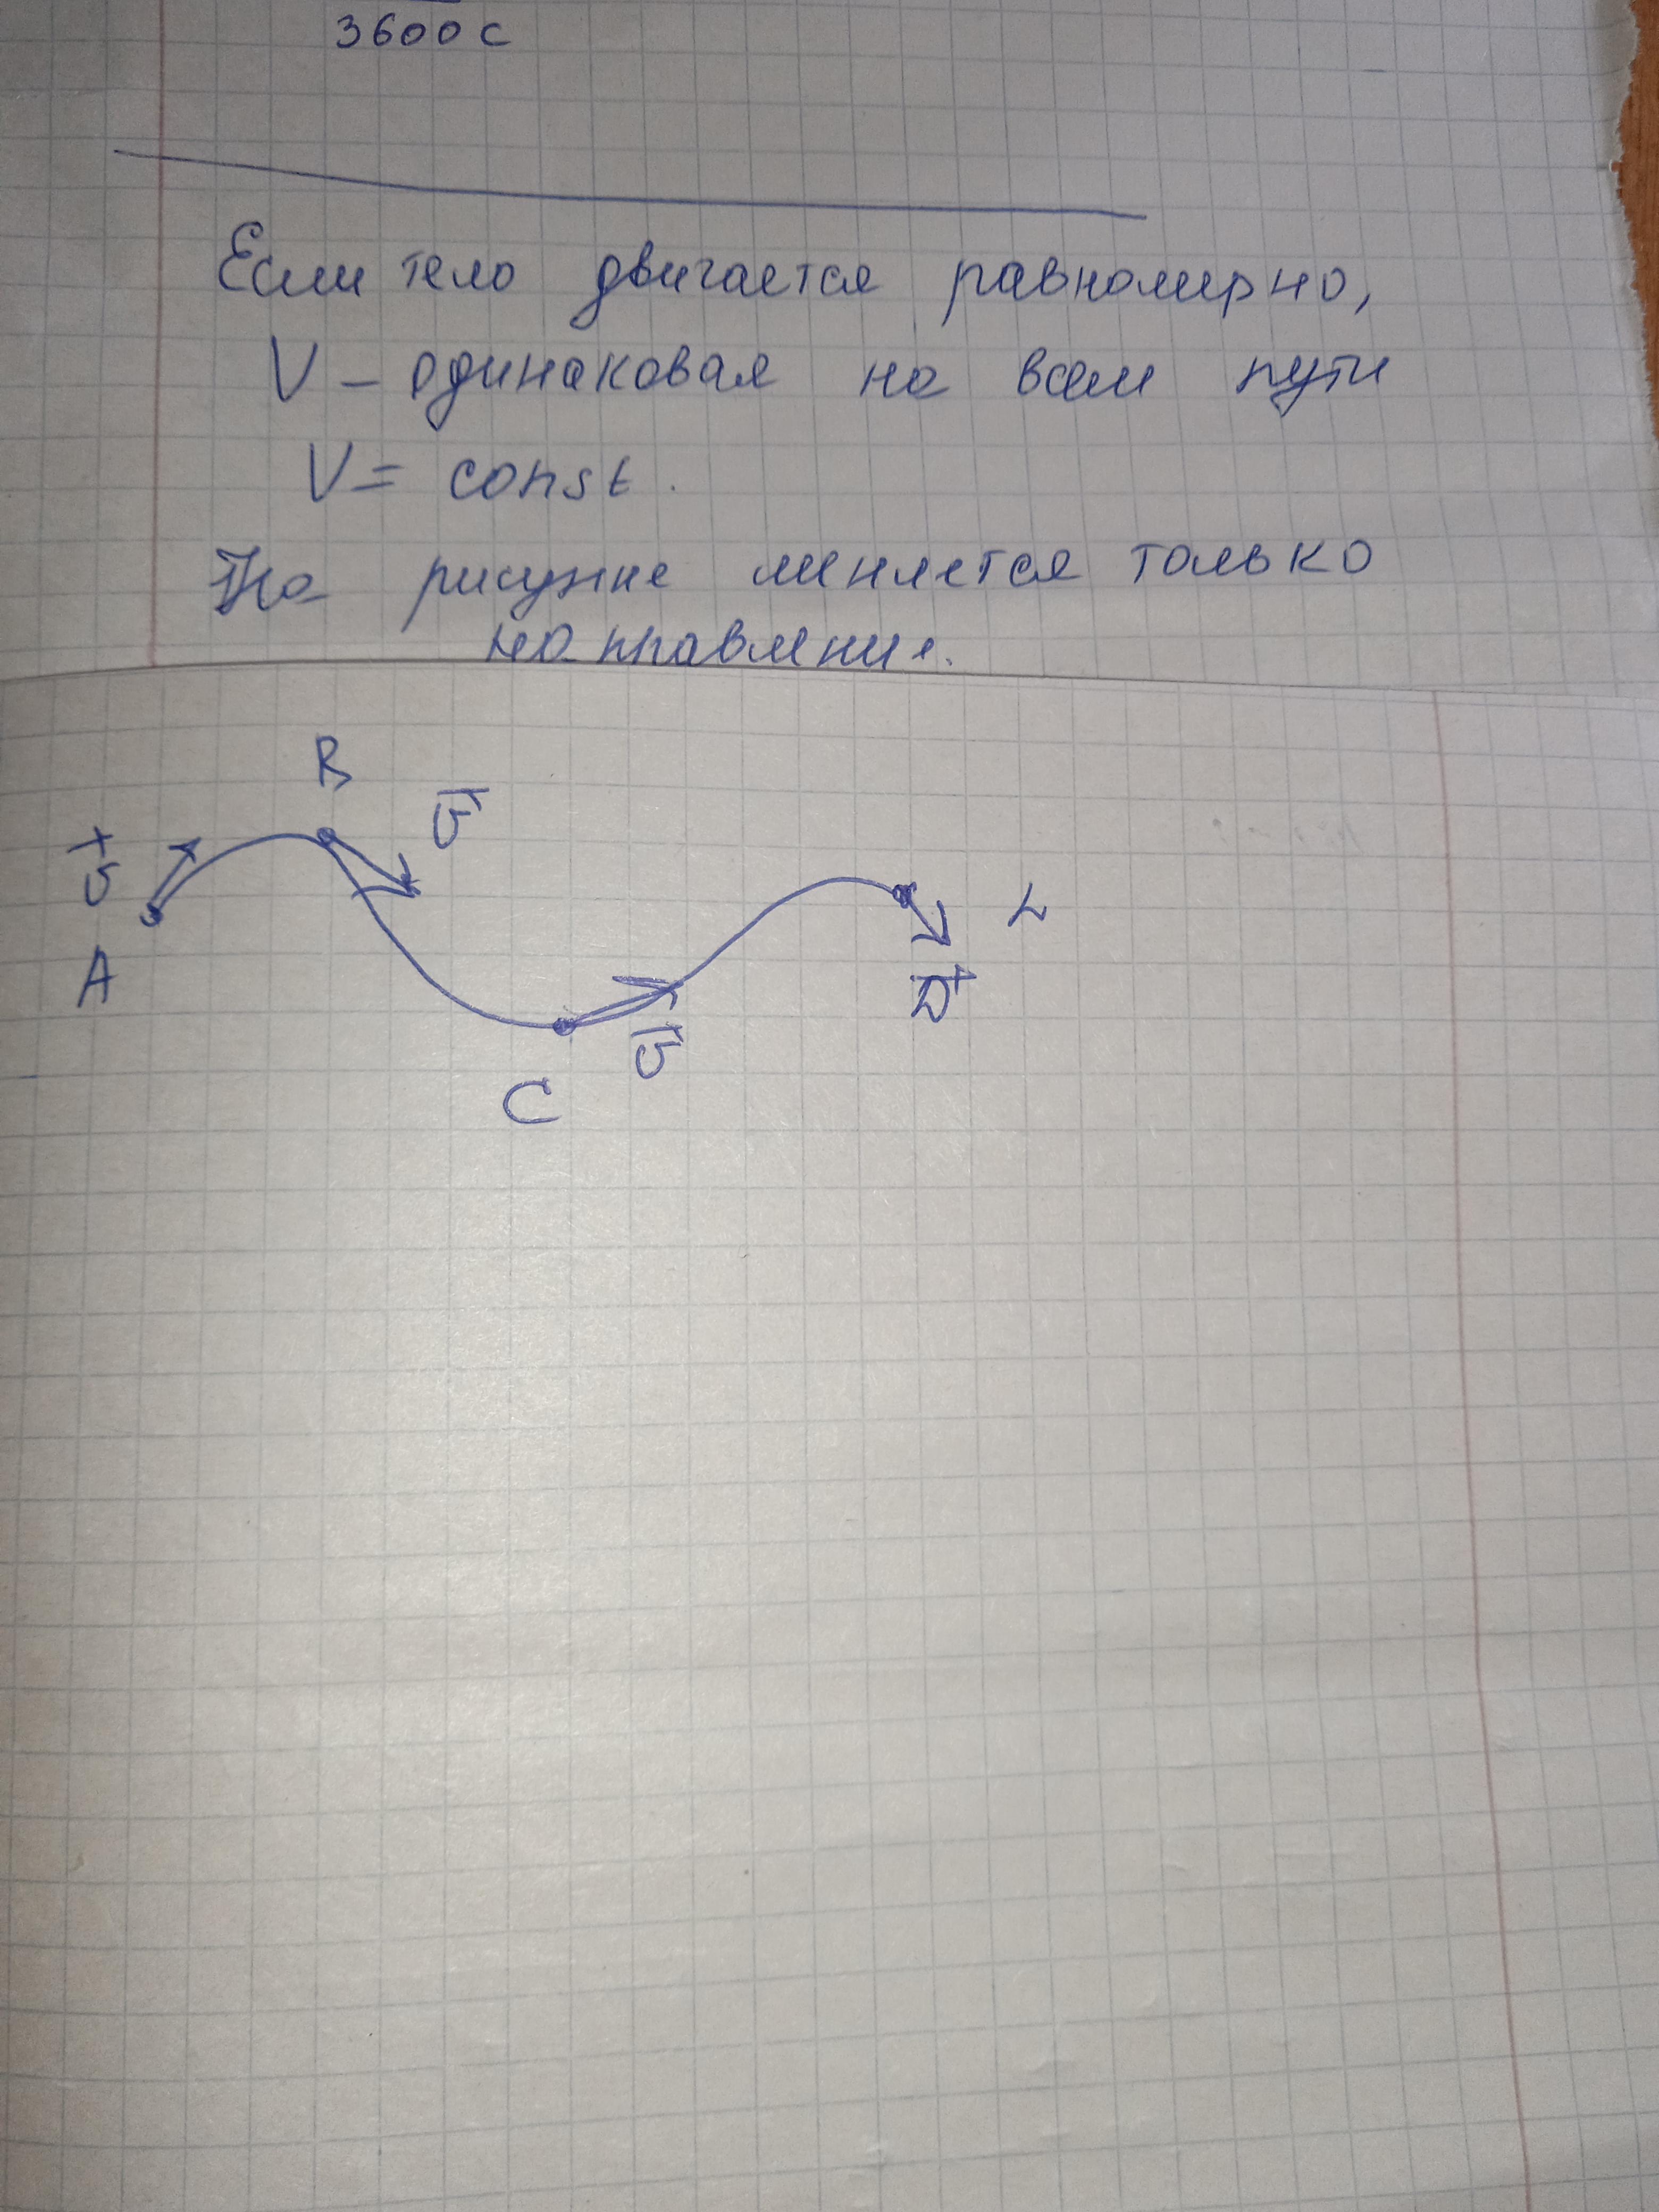 3600 с
Если тело двигается равномерно,
V – одинаковая на всем пути
V = const.
На рисунке меняется только
направление.
B
v⃗
v⃗
A
v⃗
v⃗
C